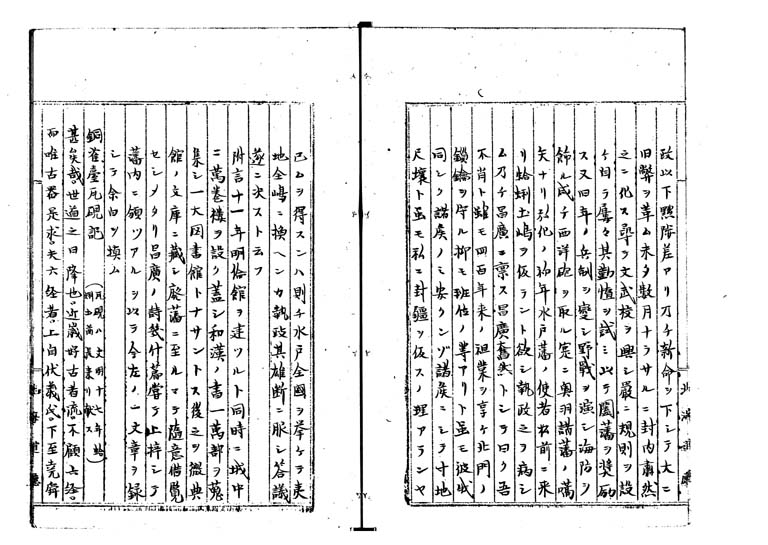 政以下黜陟差アリ乃チ新命ヲ下シテ大ニ
旧弊ヲ革ム未タ数月ナラサルニ封内粛然
之ニ化ス尋テ文武校ヲ興シ厳ニ規則ヲ設
ケ自ラ屢々其勤惰ヲ試ミ以テ闔藩ヲ奨励
ス又旧年ノ兵制ヲ変シ野戦ヲ演シ海防ヲ
飾ル咸チ西洋砲ヲ取ル寔ニ奥羽諸藩ノ嚆
矢ナリ弘化ノ初年水戸藩ノ使者松前ニ来
リ蛤蜊土嶋ヲ仮ラント欲シ執政之ヲ病シ
ム乃チ昌廣ニ稟ス昌廣奮然トシテ曰ク吾
不肖ト雖モ四百年来ノ祖業ヲ享ケ北門ノ
鎖鑰ヲ守ル抑モ班位ノ等アリト雖モ彼此
同シク諸侯ノミ安クンゾ諸侯ニシテ寸地
尺壌ト雖モ私ニ封疆ヲ仮スノ理アランヤ
已ムヲ得スンハ則チ水戸全國ヲ挙ケテ夷
地全嶋ニ換ヘンカ執政其雄断ニ服シ答議
遂ニ決スト云フ
附言十一年明倫館ヲ建ツルト同時ニ城中
ニ萬巻楼ヲ設ク蓋シ和漢ノ書一萬部ヲ蒐
集シ一大図書館トナサントス後之ヲ徴典
館ノ文庫ニ蔵シ廃藩ニ至ルマテ随意借覧
セシメタリ昌廣ノ詩幾什篇嘗テ上梓シテ
藩内ニ頒ツアルヲ以テ今左ノ一文章ヲ録
シテ余白ヲ填ム
銅雀臺瓦硯記
甚矣哉。世道之日降也。近歳好古者流。不顧六経。
而唯古器是求。夫六経者。上自伏羲氏。下至堯舜